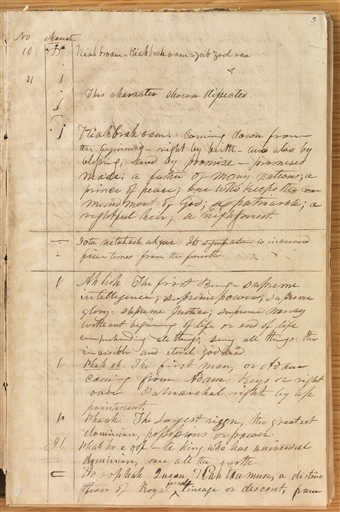 3
No Charact
10 Kiah broam = Kiah brah oam = zub zool oan
11
This character shown disected
Kiah brah oam. coming down from
the beginning - right by birth - and also by
blessing, and by promise - promised
made; a father of many nations; a
prince of peace; one who keeps the com
mandment of God; a patriarch; a
rightful heir; a highpriest.
Iota netahach ah que. Its signification is increased
five times from the fourth
Ah lish The first Being - supreme
intelligence; supreme power; supreme
glory - supreme Justice; supreme mercy
without beginning of life or end of life
comprehending all things, seeing all things - the
invisible and eternal godhead.
Phah eh. The first man, or Adam
coming from Adam. Kings or right
over Patriarchal right by app
pointment.
Phaah The longest reign, the greatest
dominion, possessions or power.
Pha ho e oop - the king who has universal
dominion, over all the earth.
Ho oop hah Queen, woman, a distinc
tion of Royal female lineage or descent, from